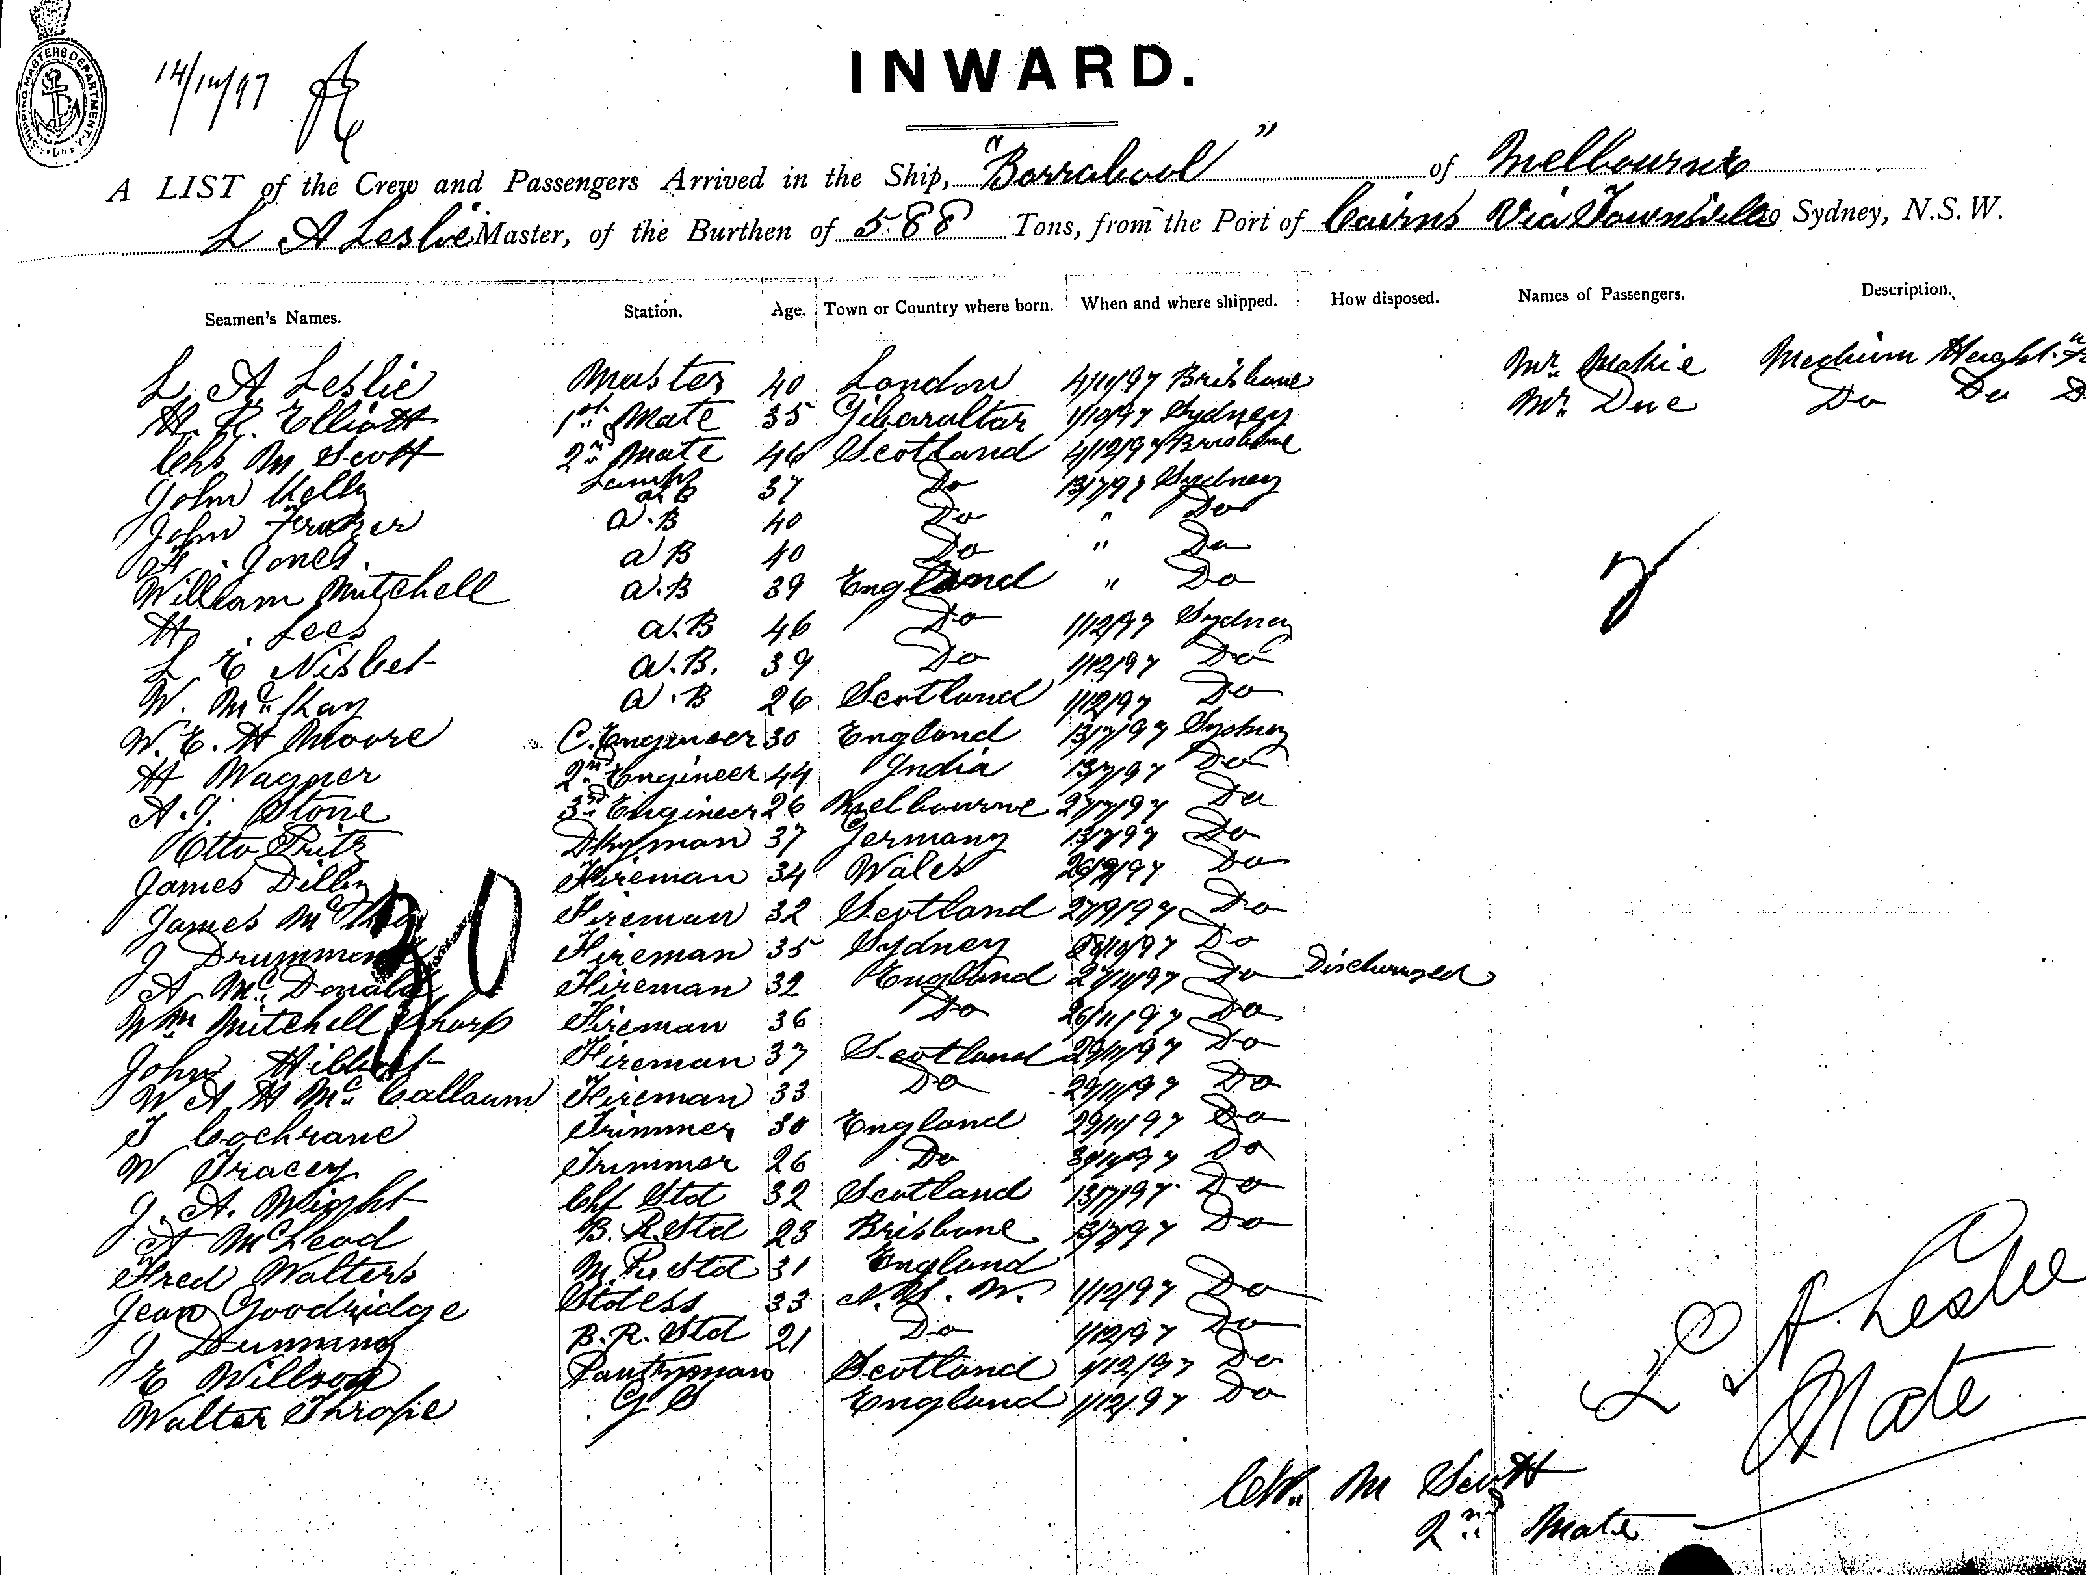 SHIPPING MASTERS DEPARTMENT
14/12/97
INWARD.
A LIST of the Crew and Passengers Arrived in the Ship, "Barrabool" of Melbourne
L A Leslie Master, of the Burthen of 588 Tons, from the Port of Cairns Via Townsville to Sydney, N.S.W.
Seamen's Names. Station. Age. Town or Country where born. When and where shipped. How disposed. Names of Passengers. Description.
L. A. Leslie Master 40 London 4/11/97 Brisbane Mr. Makie Medium Height
H. R. Elliott 1st Mate 35 Giberaltar 1/12/97 Sydney Mr. Due Do Do D
Chs M Scott 2nd Mate 46 Scotland 4/12/97 Brisbane
John Kelly Lamps a B 37 Do 13/7/97 Sydney
John Frazer a.B 40 Do " Do
Jones. a B 40 Do " Do
William Mitchell a.B 39 England " Do
H. Lees a.B 46 Do 1/12/97 Sydney
L E Nisbet a.B. 39 Do 1/12/97 Do
W. Mc Kay a.B 26 Scotland 1/12/97 Do
W. E. H Moore C. Engineer 30 England 13/7/97 Sydney
H Wagner 2nd Engineer 44 India 13/7/97 Do
A. J. Stone 3rd Engineer 26 Melbourne 27/7/97 Do
Otto Fritz Dkyman 37 Germany 13/7/97 Do
James Dilly Fireman 34 Wales Do
James Mc Fireman 32 Scotland 27/9/97 Do
J Drummond Fireman 35 Sydney Do
A Mc Donald Fireman 32 England 27/10/97 Do Discharged
30
Wm Mitchell Sharp Fireman 36 Do 26/11/97 Do
John Fireman 37 Scotland 29/11/97 Do
W A H Mc Callaum Fireman 33 Do 29/11/97 Do
T Cochrane Trimmer 30 England 29/11/97 Do
W Tracey Trimmer 26 Do Do
J. A. Wright Chf Std 32 Scotland 13/7/97 Do
A McLeod B. R. Std 23 Brisbane 13/7/97 Do
Fred Walters Std 31 England
Jean Goodridge Stdess 33 N.S.W. 1/12/97 Do
J Dunning B.R. Std 21 Do 1/12/97 Do
E Willson Pantryman Scotland 1/12/97 Do
Walter Thropie G S England 1/12/97 Do
L A. Leslie
Mate
Ch. M Scott
2nd Mate